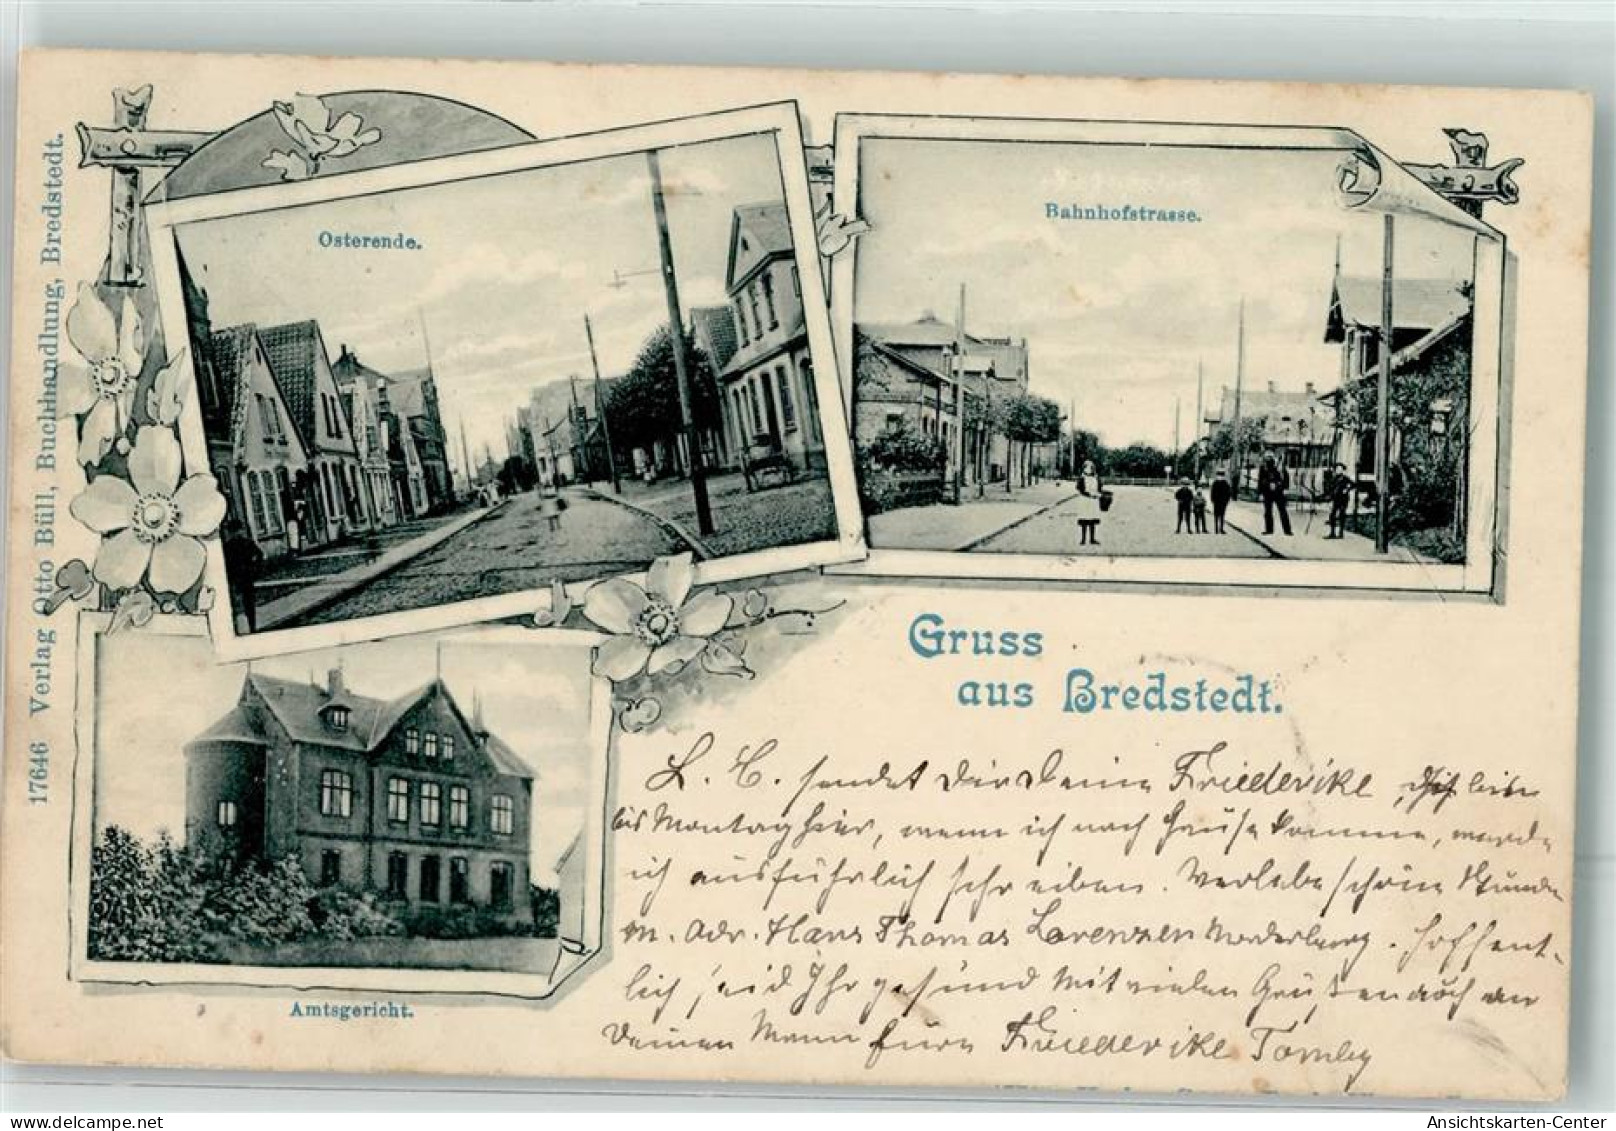 Osterende.
Bahnhofstrasse.
17646 Verlag Otto Büll, Buchhandlung, Bredstedt.
Gruss
aus Bredstedt.
Amtsgericht.
L. C. sendet Dir Deine Friederike, bin
bis Montag hier, wenn ich nach Hause komme, werde
ich ausführlich schreiben. Verlebe schöne Stunden
m. Adr. Hans Thomas Lorenzen Norderburg. Hoffent-
lich seid Ihr gesund Mit vielen Grüßen auch an
Deinen Mann Eure Friederike
Ansichtskarten-Center